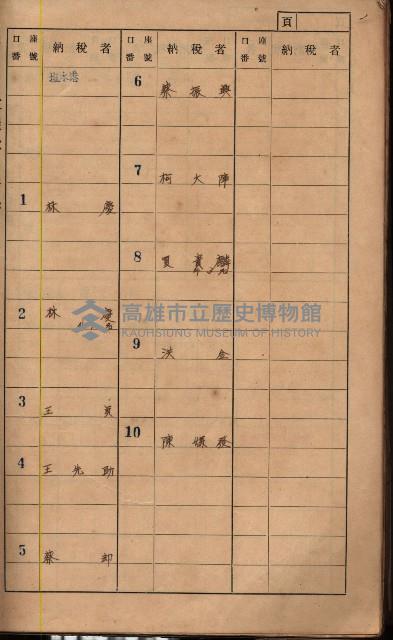 頁
口座番號
納稅者
口座番號
納稅者
口座番號
納稅者
塩水港
1 林慶
2 林慶
3 王貢
4 王先助
5 蔡却
6 蔡振興
7 柯大陣
8
9 洪金
10 陳
高雄市立歷史博物館
KAOHSIUNG MUSEUM OF HISTORY